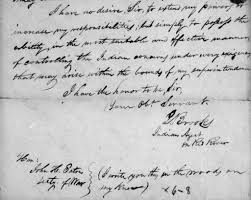 I have no desire Sir, to extend my power or
increase my responsibilities, but simply to possess the
ability in the most suitable and effective manner,
of controlling the Indian concerns under every exigency
that may arise within the bounds of my superintendence
I have the honor to be, Sir,
Your Obt. Servant
Brooks
Indian Agt
Red River
Hon
John H. Eaton
Secty of War
(I write you this in the woods on
my knee)
6-8